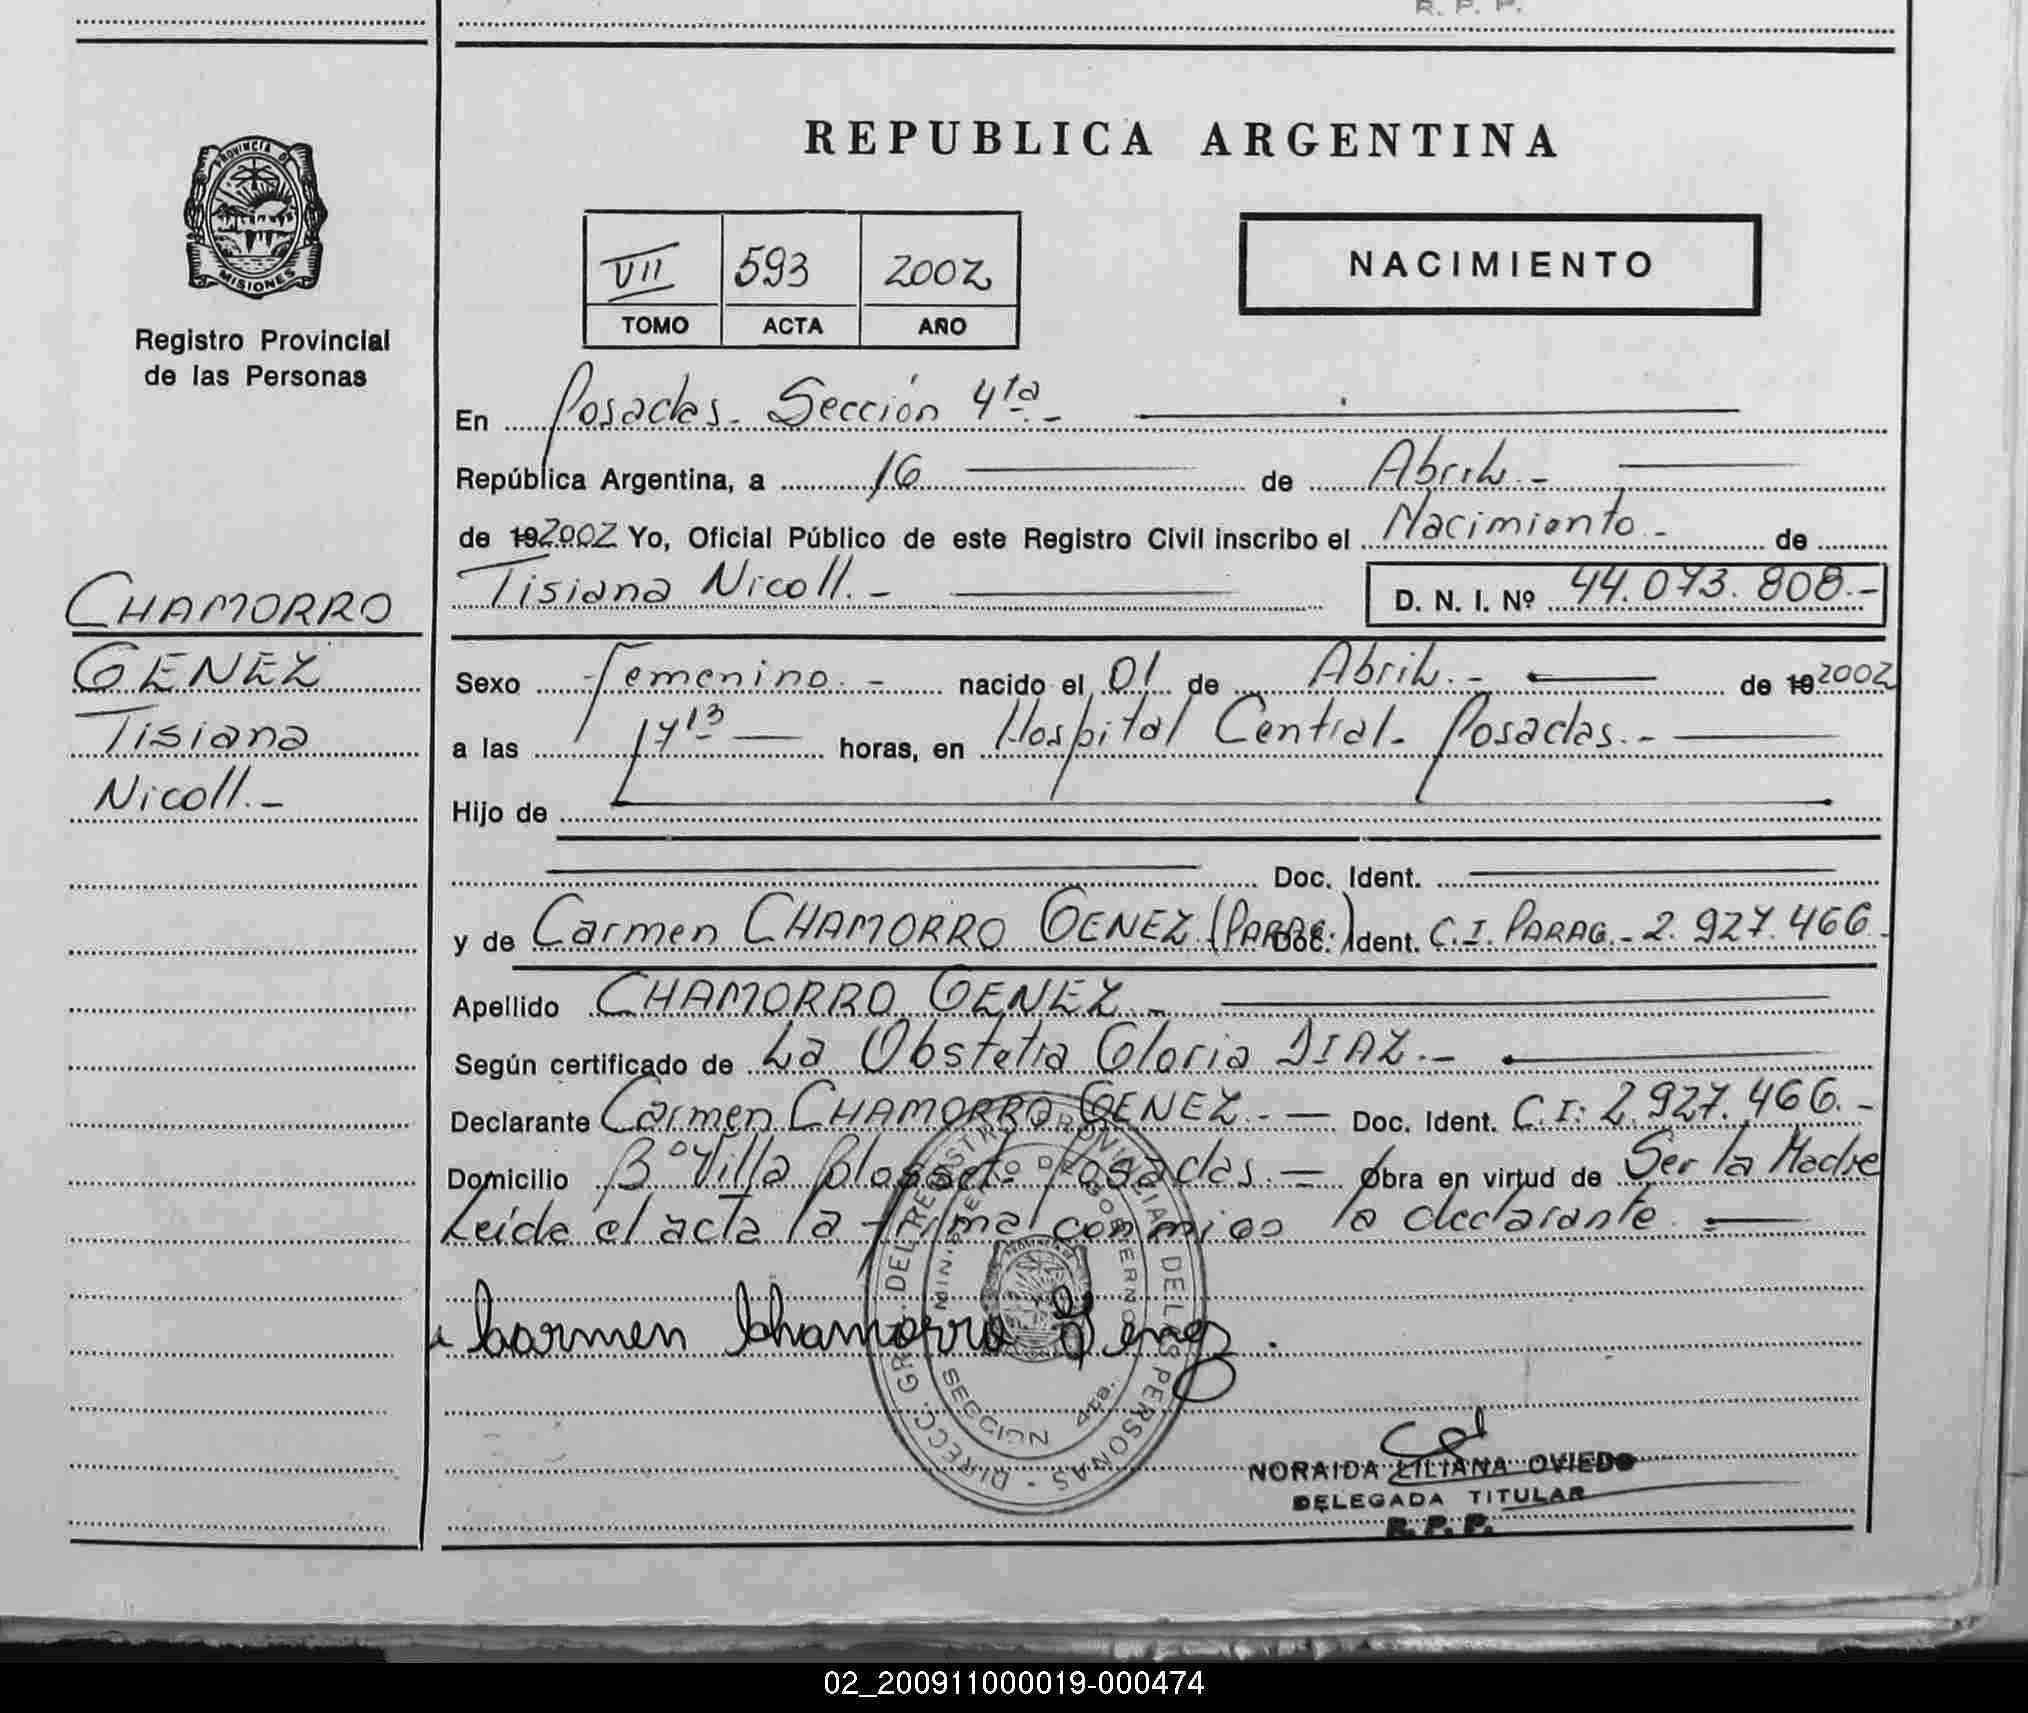 R. P. P.
PROVINCIA DE
MISIONES
Registro Provincial
de las Personas
CHAMORRO
GENEZ
Tisiana
Nicoll.-
REPUBLICA ARGENTINA
VII 593 2002
TOMO ACTA AÑO
NACIMIENTO
En Posadas. Sección 4ta.-
República Argentina, a 16 de Abril.-
de 19 2002 Yo, Oficial Público de este Registro Civil inscribo el Nacimiento.- de
Tisiana Nicoll.- D. N. I. Nº 44.073.808.-
Sexo Femenino.- nacido el 01 de Abril.- de 19 2002
a las 17 13 horas, en Hospital Central. Posadas.-
Hijo de
Doc. Ident.
y de Carmen CHAMORRO GENEZ (PARAG.) Doc. Ident. C.I. PARAG.- 2.927.466.
Apellido CHAMORRO GENEZ.-
Según certificado de La Obstetra Gloria DIAZ.-
Declarante Carmen CHAMORRO GENEZ.- Doc. Ident. C.I: 2.927.466.-
Domicilio Bº Villa Blosset. Posadas.- Obra en virtud de Ser la Madre
Leída el acta la firma conmigo la declarante.
Carmen Chamorro Genez.
DIRECC. GR. DEL REGISTRO PROVINCIAL DE LAS PERSONAS
MINISTERIO DE GOBIERNO
SECCION 4ta.
NORAIDA LILIANA OVIEDO
DELEGADA TITULAR
R. P. P.
02_200911000019-000474